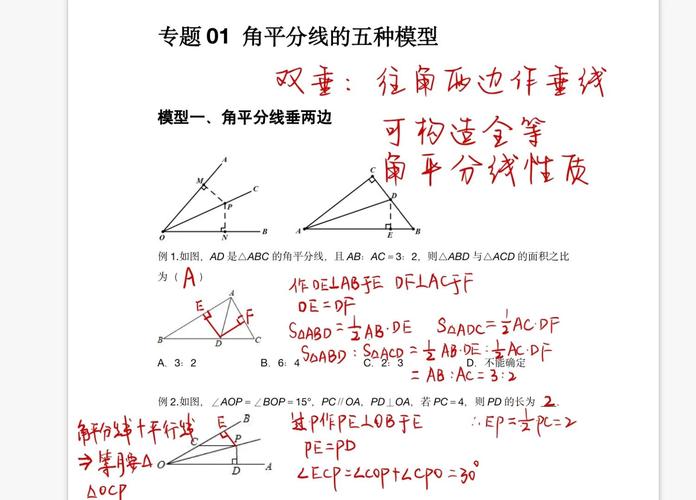 专题 01 角平分线的五种模型
双垂：往角两边作垂线
模型一、角平分线垂两边
可构造全等
角平分线性质
A
M
C
P
O
N
B
C
D
A
E
B
例 1.如图，AD 是△ABC 的角平分线，且 AB：AC＝3：2，则△ABD 与△ACD 的面积之比
为（ A ）
作DE⊥AB于E DF⊥AC于F
DE=DF
A
E
F
B
D
C
S△ABD=½AB·DE S△ADC=½AC·DF
S△ABD:S△ACD=½AB·DE:½AC·DF
A．3：2 B．6：4 C．2：3 D．不能确定
=AB:AC=3:2
例 2.如图，∠AOP＝∠BOP＝15°，PC∥OA，PD⊥OA，若 PC＝4，则 PD 的长为 2 .
角平分线+平行线
⇒等腰△
△OCP
E
B
C
P
O
D
A
过P作PE⊥OB于E
∴EP=½PC=2
PE=PD
∠ECP=∠COP+∠CPO=30°